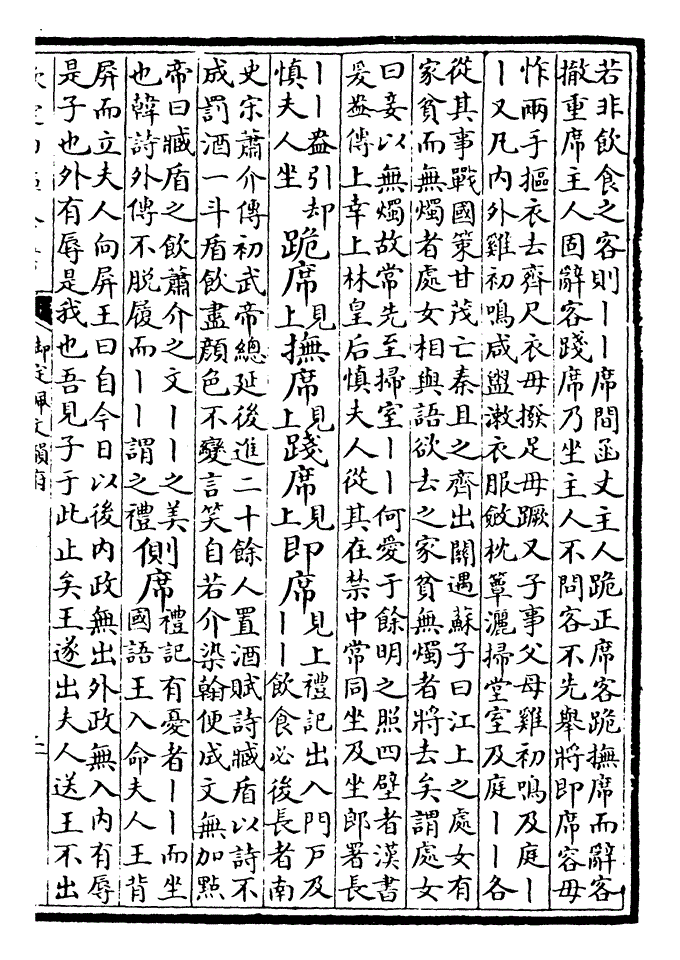 若非飲食之客則丨丨席間函丈主人跪正席客跪撫席而辭客
撤重席主人固辭客踐席乃坐主人不問客不先舉將即席容毋
怍兩手摳衣去齊尺衣毋撥足毋蹶又子事父母雞初鳴及庭丨
丨又凡内外雞初鳴咸盥漱衣服斂枕簟灑掃堂室及庭丨丨各
從其事戰國策甘茂亡秦且之齊出關遇蘇子曰江上之處女有
家貧而無燭者處女相與語欲去之家貧無燭者將去矣謂處女
曰妾以無燭故常先至掃室丨丨何愛于餘明之照四壁者漢書
爰盎傳上幸上林皇后慎夫人從其在禁中常同坐及坐郎署長
丨丨盎引却慎夫人坐 跪席 見上 撫席 見上 踐席 見上 即席 見上禮記出入門戸及丨丨飲食必後長者南
史宋蕭介傳初武帝總延後進二十餘人置酒賦詩臧盾以詩不
成罰酒一斗盾飲盡顔色不變言笑自若介染翰便成文無加點
帝曰臧盾之飲蕭介之文丨丨之美
也韓詩外傳不脱履而丨丨謂之禮
側席 禮記有憂者丨丨而坐
國語王入命夫人王背
屏而立夫人向屏王曰自今日以後内政無出外政無入内有辱
是子也外有辱是我也吾見子于此止矣王遂出夫人送王不出
御定佩文韻府